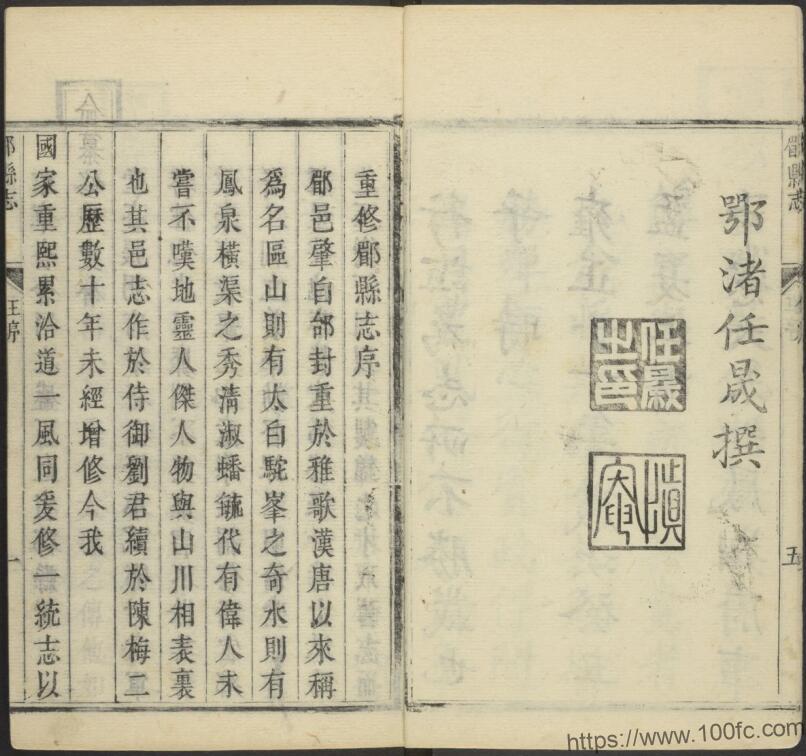 郿縣志
鄂渚任晟撰
任晟之印
五
重修郿縣志序
郿邑肇自邰封重於雅歌漢唐以來稱
爲名區山則有太白駝峯之奇水則有
鳳泉橫渠之秀清淑蟠毓代有偉人未
嘗不嘆地靈人傑人物與山川相表裏
也其邑志作於侍御劉君續於陳梅二
公歷數十年未經增修今我
國家重熙累洽道一風同爰修一統志以
郿縣志
王序
一
https://www.100fc.com